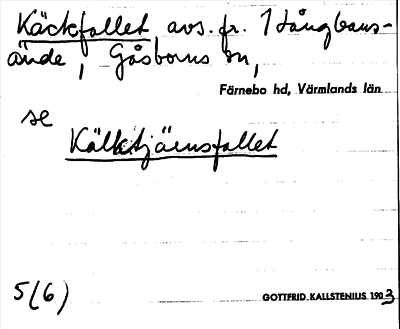 Käckfallet avs. fr. 1 Långbans-
ände, Gåsborns sn,
Färnebo hd, Värmlands län
se
Kälktjärnsfallet
5(6)
GOTTFRID KALLSTENIUS 1903